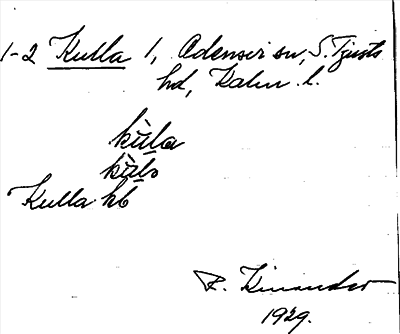 1-2 Kulla 1, Odensvi sn, S. Tjusts
hd, Kalm. l.
kùla
kùlo
Kulla hb
R. Kinander
1929.